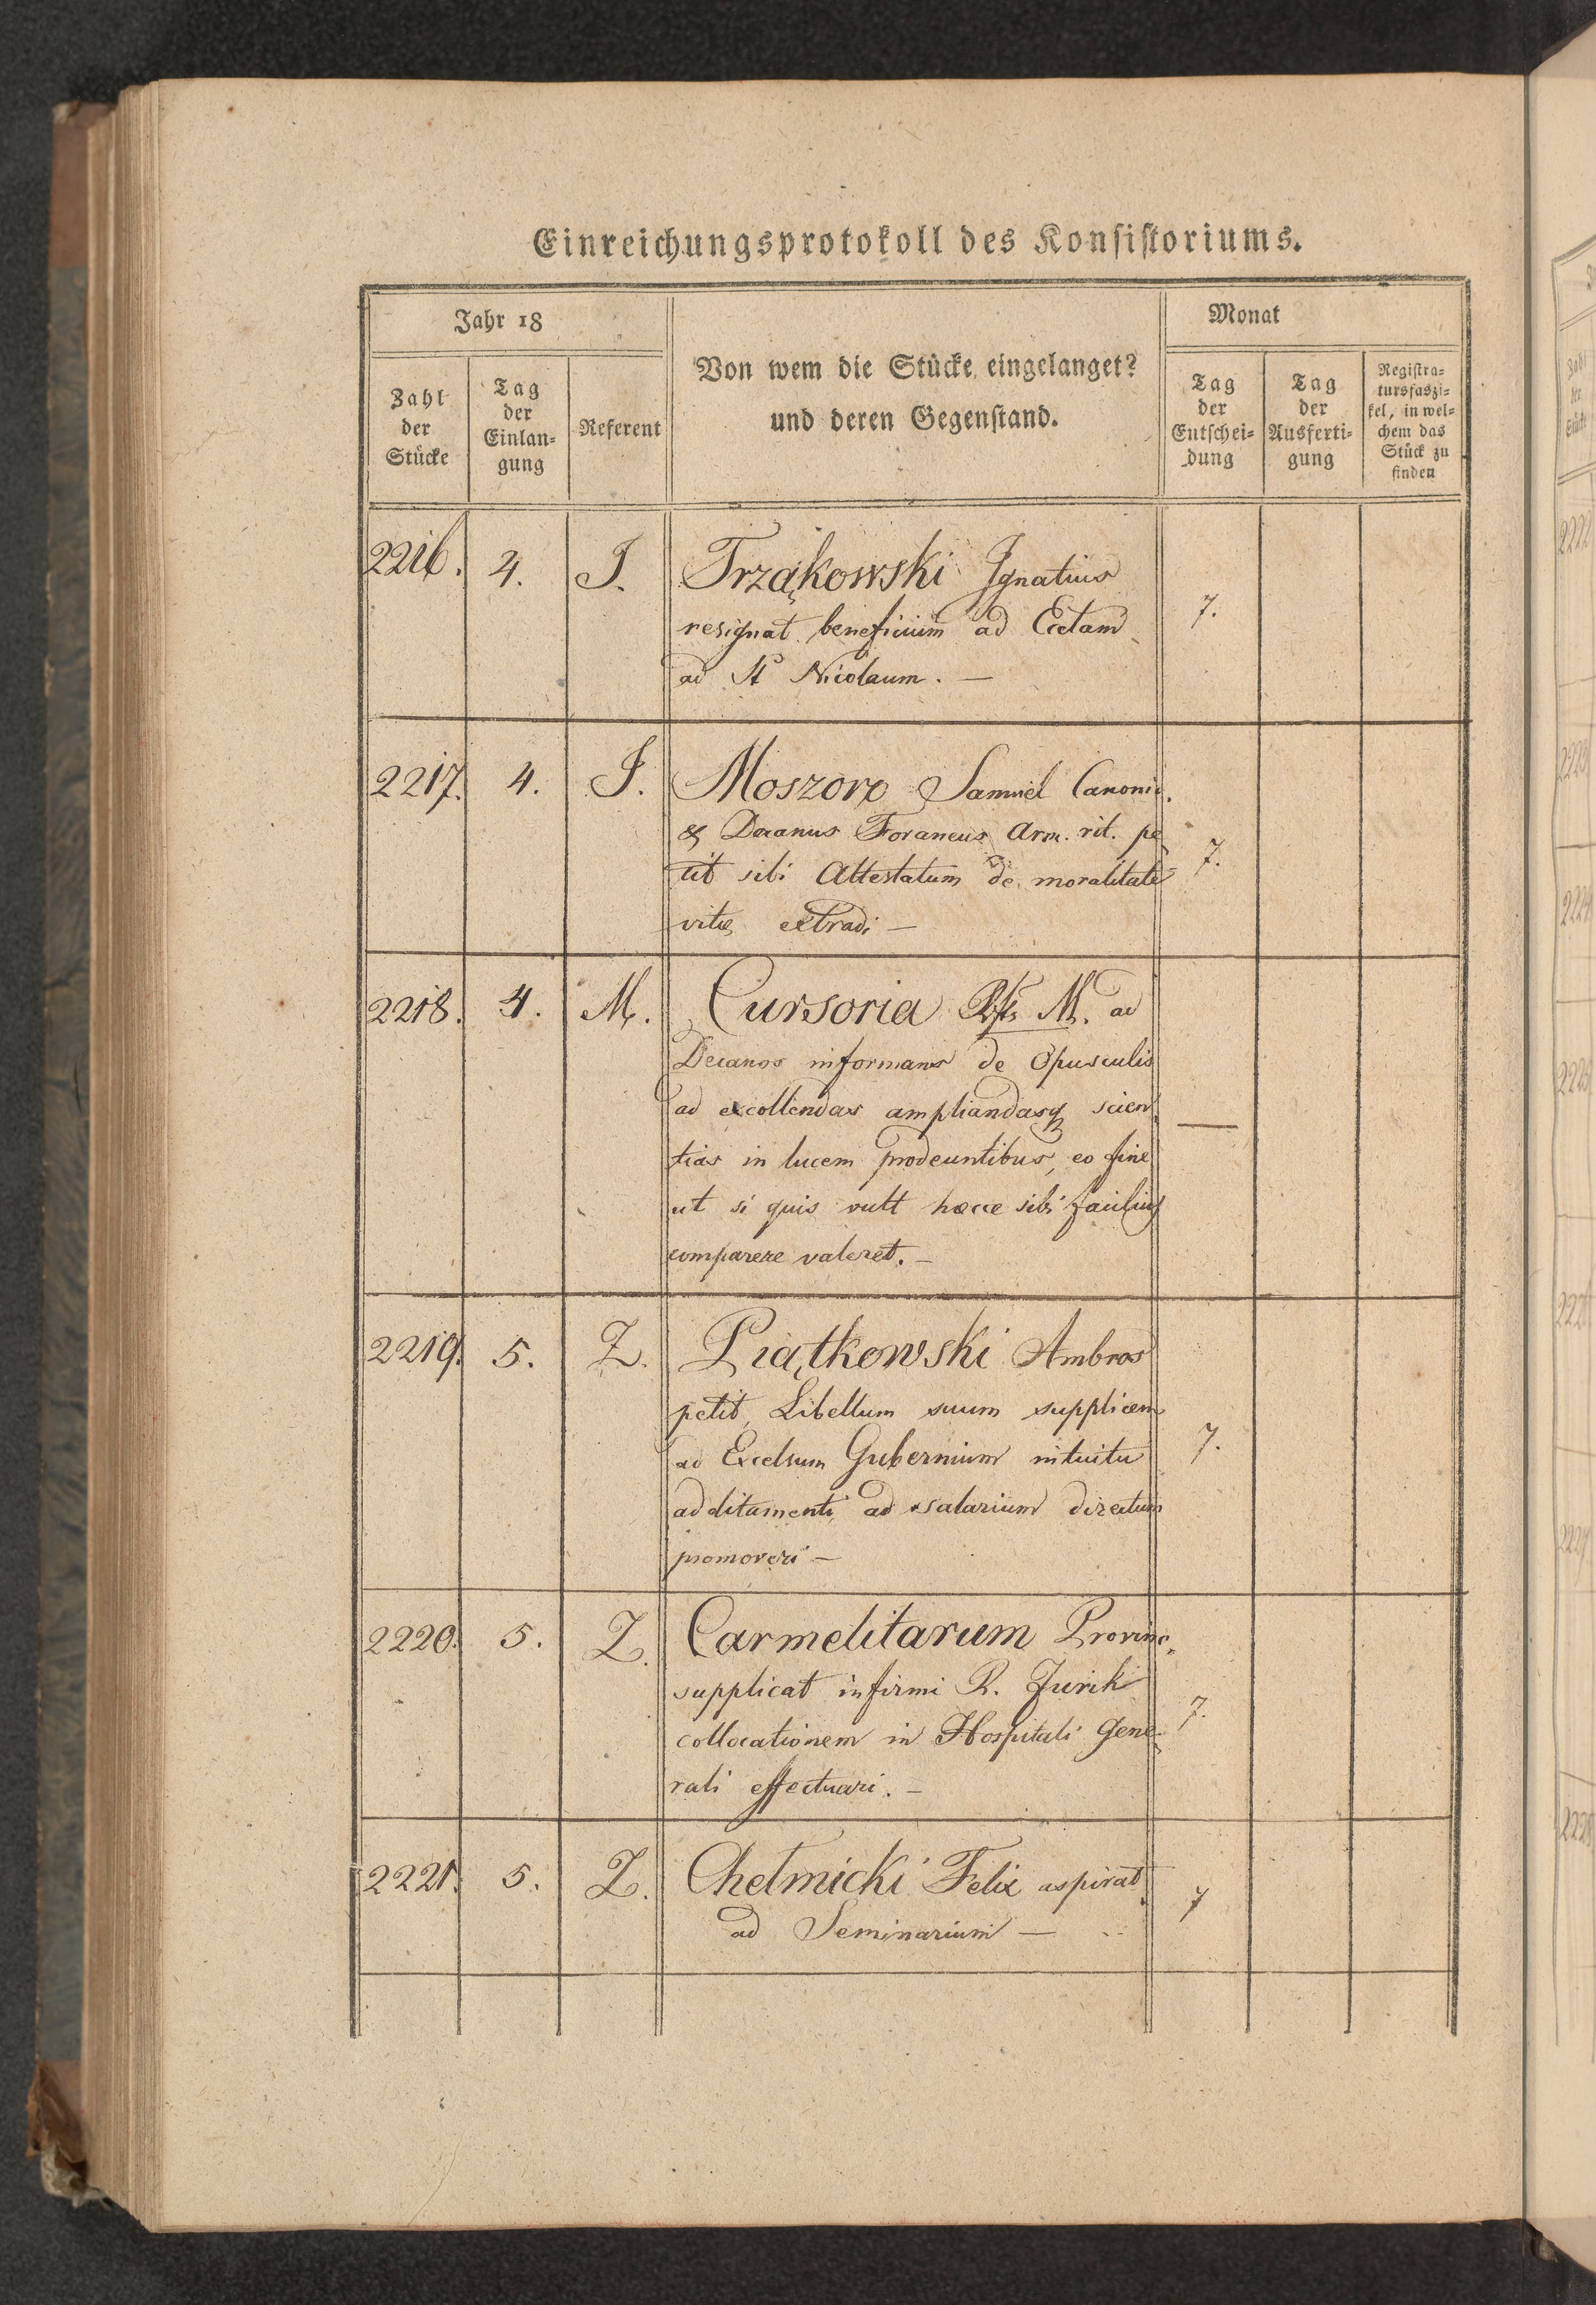 Einreichungsprotokoll des Konsistoriums.
Jahr 18
Zahl der Stücke
Tag der Einlan=gung
Referent
Von wem die Stücke eingelanget?
und deren Gegenstand.
Monat
Tag der Entschei=dung
Tag der Ausferti=gung
Registra=tursfaszi=kel, in wel=chem das Stück zu finden
2216. 4. J. Trząkowski Ignatius
resignat beneficium ad Eccl̄am
ad St Nicolaum. — 7.
2217. 4. J. Moszoro Samuel Canonic.
& Decanus Foraneus Arm. rit. pe
tit sibi Attestatum de moralitate 7.
vitæ extradi —
2218. 4. M. Cursoria M. ad
Decanos informans de Opusculis
ad excollendas ampliandasq scien —
tias in lucem prodeuntibus, eo fine
ut si quis vult hæcce sibi facilius
comparere valeret. —
2219. 5. Z. Piątkowski Ambros
petit Libellum suum supplicem
ad Excelsum Gubernium intuitu 7.
additamenti ad salarium directum
promoveri —
2220. 5. Z. Carmelitarum Provinc.
supplicat infirmi R. Jurik
collocationem in Hospitali Gene- 7.
rali effectuari. —
2221. 5. Z. Chełmicki Felix aspirat
ad Seminarium — 7